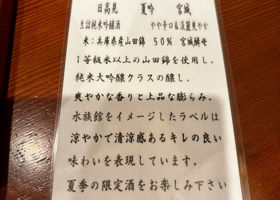 日高見　夏吟　宮城
生詰純米吟醸酒　やや辛口＆淡麗爽やか
米：兵庫県産山田錦　50%　宮城酵母
1等級米以上の山田錦を使用し、
純米大吟醸クラスの醸し。
爽やかな香りと上品な膨らみ。
水族館をイメージしたラベルは
涼やかで清涼感あるキレの良い
味わいを表現しています。
夏季の限定酒をお楽しみ下さい